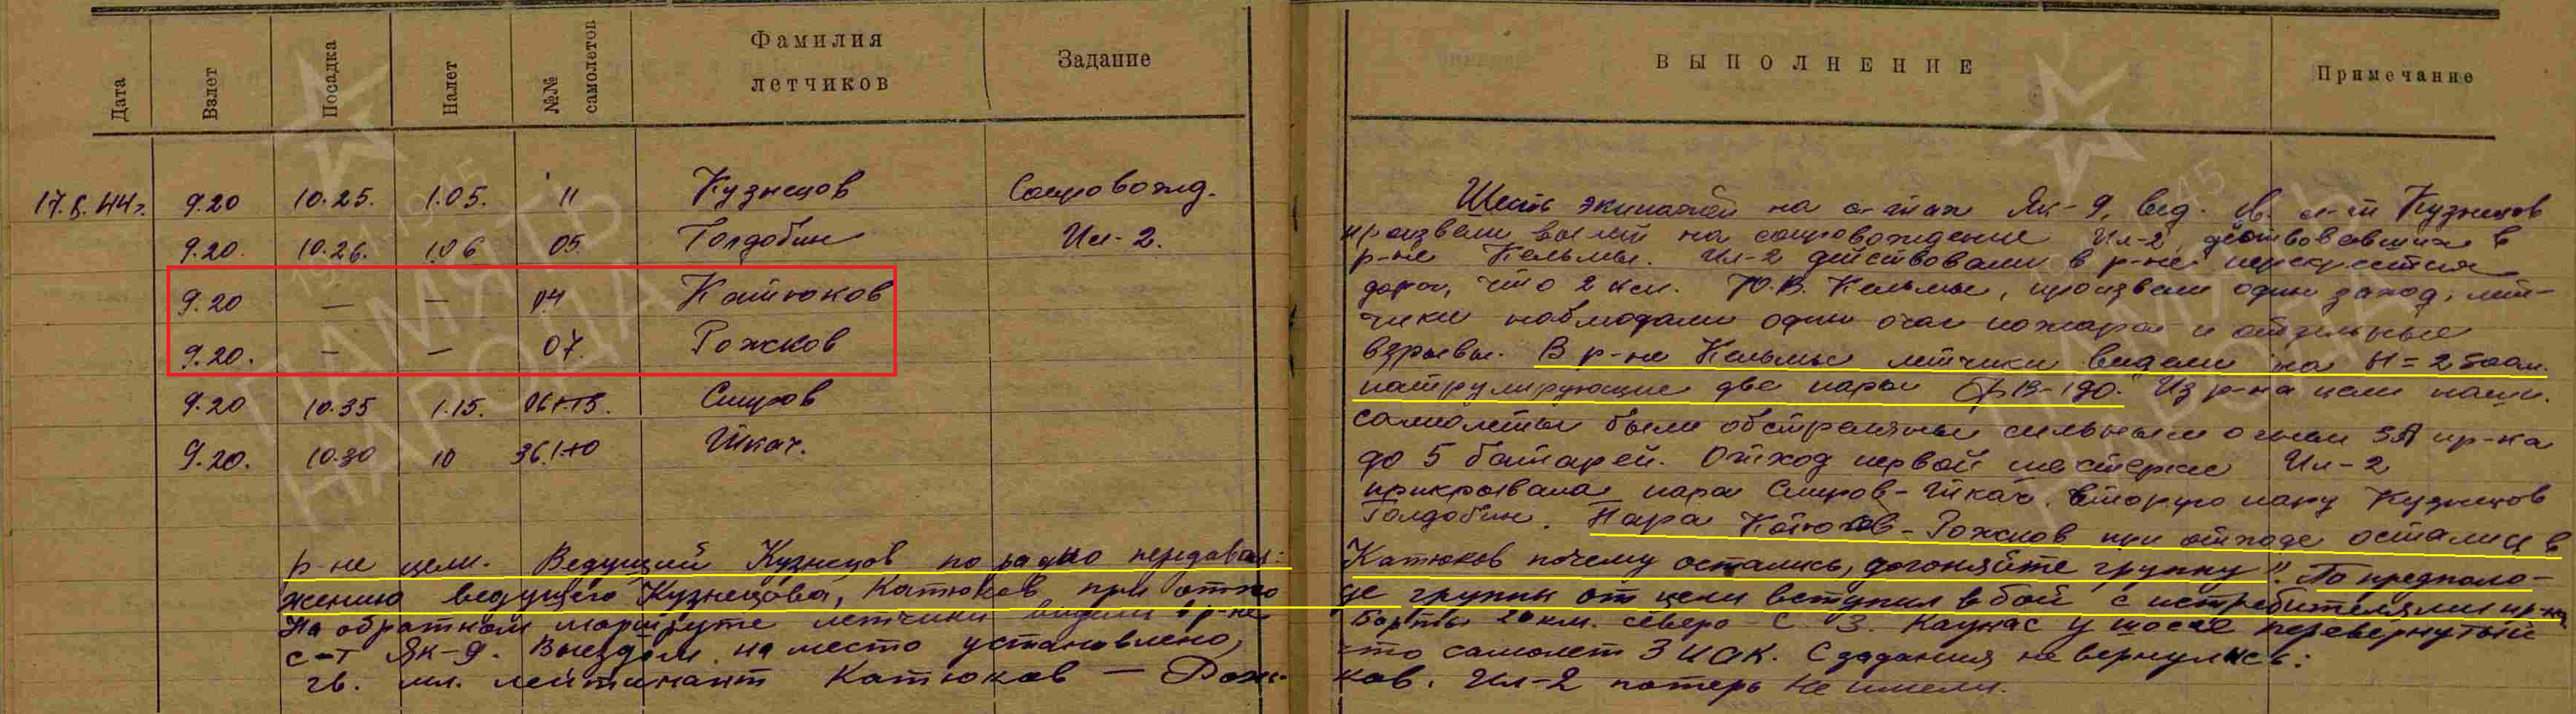 Дата Взлет Посадка Налет №№ самолетов Фамилия летчиков Задание ВЫПОЛНЕНИЕ Примечание
17.8.44г. 9.20 10.25. 1.05. 11 Кузнецов Сопровожд.
9.20. 10.26. 1.06 05. Голдобин Ил-2.
9.20 — — 04 Катюков
9.20. — — 07. Рожков
9.20 10.35 1.15. Смиров
9.20. 10.30 10 Ткач.
Шесть экипажей на с-тах Як-9, вед. гв. л-т Кузнецов
произвели вылет на сопровождение Ил-2, действовавших в
р-не Кельмы. Ил-2 действовали в р-не перекрестия
дорог, что 2 км. Ю.В. Кельмы, произвели один заход, лет-
чики наблюдали один очаг пожара и отдельные
взрывы. В р-не Кельмы летчики видели на Н=2500м.
патрулирующие две пары ФВ-190. Из р-на цели наши
самолеты были обстреляны сильным огнем ЗА пр-ка
до 5 батарей. Отход первой шестерки Ил-2
прикрывала пара Смиров-Ткач, вторую пару Кузнецов
Голдобин. Пара Катюков-Рожков при отходе остались в
р-не цели. Ведущий Кузнецов по радио передавал: "Катюков почему остались, догоняйте группу". По предполо-
жению ведущего Кузнецова, Катюков при отхо де группы от цели вступил в бой с истребителями пр-ка.
На обратном маршруте летчики видели в р-не 20 км. северо - С З. Каунас у шоссе перевернутый
с-т Як-9. Выездом на место установлено, что самолет 3 ИАК. С задания не вернулись:
гв. мл. лейтенант Катюков — Рож- ков. Ил-2 потерь не имели.
ПАМЯТЬ
НАРОДА
1941 1945